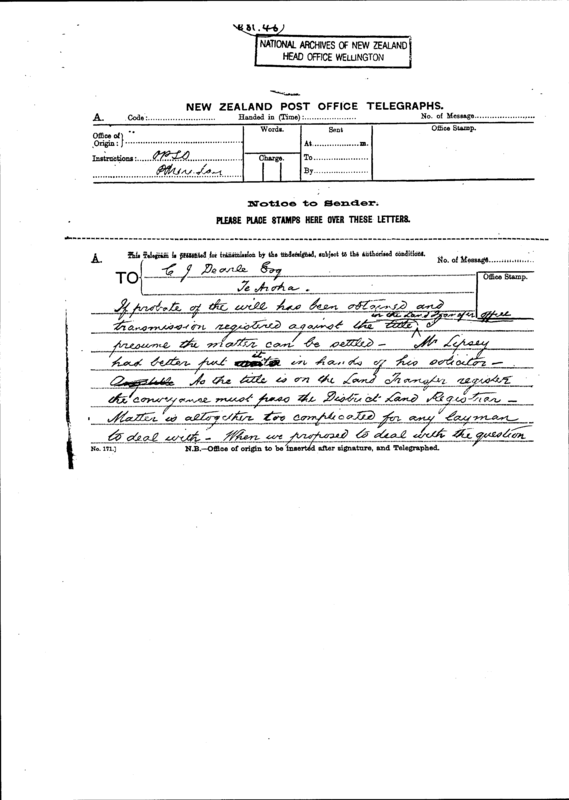 NATIONAL ARCHIVES OF NEW ZEALAND
HEAD OFFICE WELLINGTON
NEW ZEALAND POST OFFICE TELEGRAPHS.
A. Code: Handed in (Time): No. of Message
Office of Origin:
Words. Sent Office Stamp.
At m.
Instructions: Charge. To
By
Notice to Sender.
PLEASE PLACE STAMPS HERE OVER THESE LETTERS.
A. This Telegram is presented for transmission by the undersigned, subject to the authorised conditions. No. of Message
TO C J Dearle Esq Office Stamp.
Te Aroha.
If probate of the will has been obtained and
transmission registered against the title in the Land Transfer Office I
presume the matter can be settled – Mr Lipsey
had better put it in hands of his solicitor –
As the title is on the Land Transfer register
the conveyance must pass the District Land Registrar –
Matter is altogether too complicated for any layman
to deal with – When we proposed to deal with the question
No. 171.] N.B.—Office of origin to be inserted after signature, and Telegraphed.